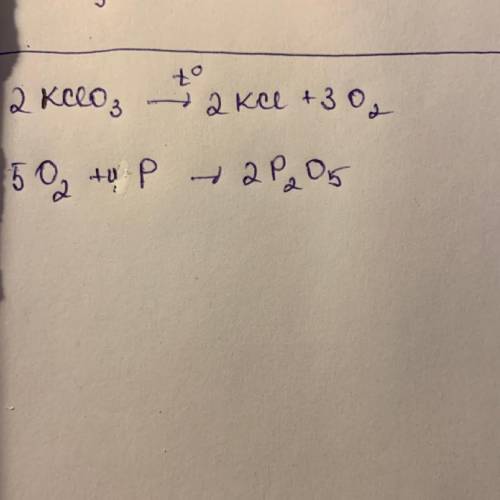 2 KClO₃ —t°→ 2 KCl + 3 O₂
5 O₂ + 4 P → 2 P₂O₅